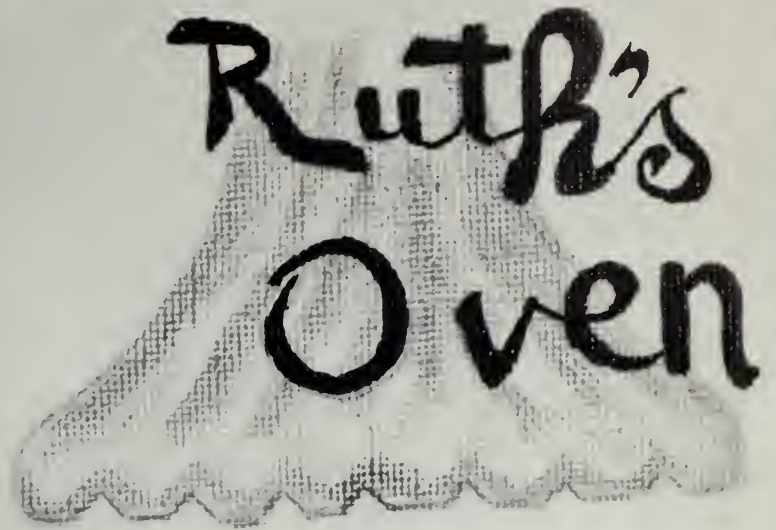 Ruth's
Oven